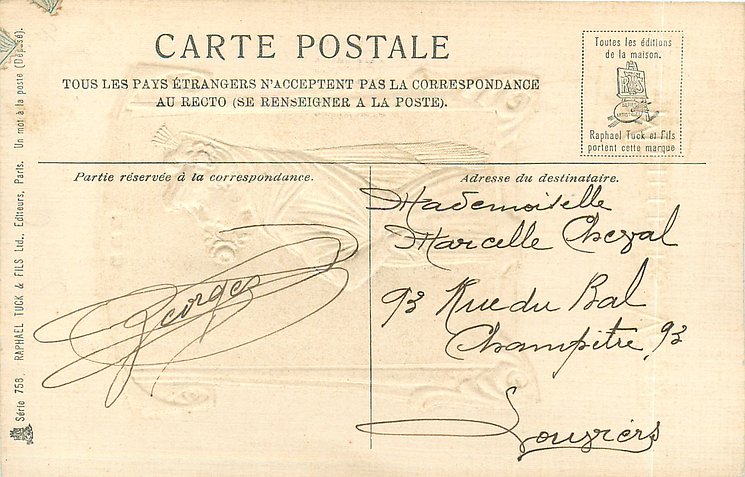 CARTE POSTALE
TOUS LES PAYS ÉTRANGERS N'ACCEPTENT PAS LA CORRESPONDANCE
AU RECTO (SE RENSEIGNER A LA POSTE).
Toutes les éditions
de la maison.
Raphael Tuck et Fils
portent cette marque
Partie réservée à la correspondance.
Georges
Adresse du destinataire.
Mademoiselle
Marcelle Cheval
93 Rue du Bal
Champêtre, 93
Louviers
Série 758, RAPHAEL TUCK & FILS Ltd., Editeurs, Paris. Un mot à la poste (Déposé).